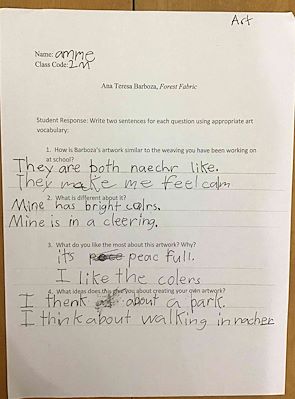 Art
Name: amme
Class Code: 2M
Ana Teresa Barboza, Forest Fabric
Student Response: Write two sentences for each question using appropriate art
vocabulary:
1. How is Barboza's artwork similar to the weaving you have been working on
at school?
They are both naechr like.
They make me feel calm
2. What is different about it?
Mine has bright colrs.
Mine is in a cleering.
3. What do you like the most about this artwork? Why?
its peac full.
I like the colers
4. What ideas does this give you about creating your own artwork?
I thenk about a park.
I think about walking in nacher